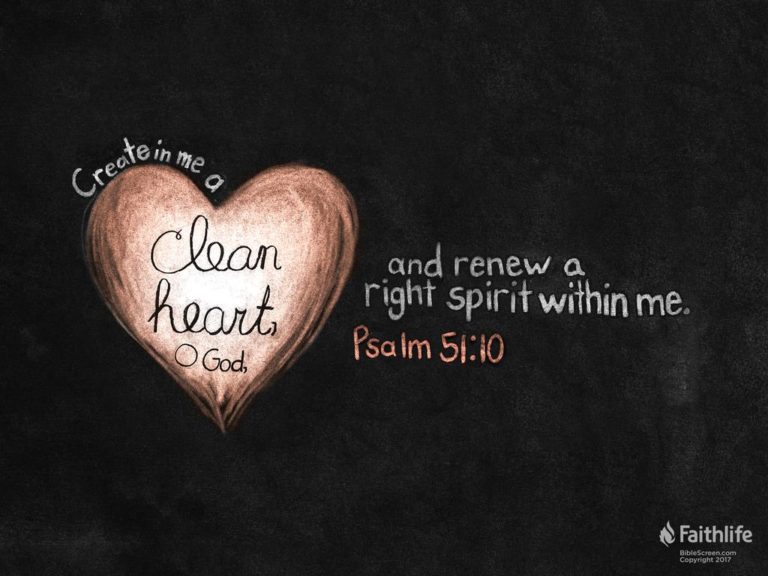 Create in me a
clean
heart,
O God,
and renew a
right spirit within me.
Psalm 51:10
Faithlife
BibleScreen.com
Copyright 2017